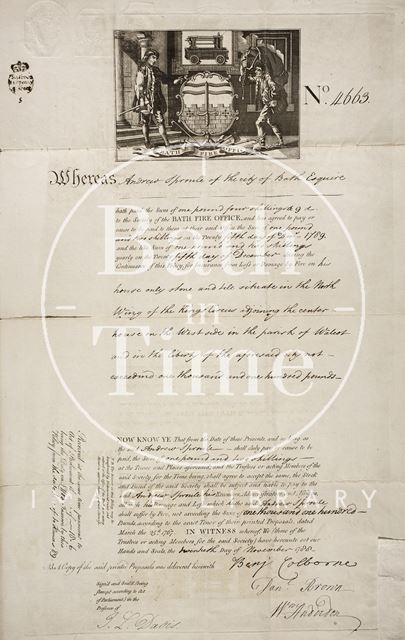 BATH FIRE OFFICE
No. 4663.
Whereas Andrew Sproule of the city of Bath Esquire
hath paid the Sum of one pound four shillings & 9 d.
to the Society of the BATH FIRE OFFICE, and has agreed to pay or
cause to be paid to them at their said Office the Sum of one pound
and two shillings on the Twenty fifth day of 1789.
and the like Sum of one pound and two shillings
yearly on the Twenty fifth day of December during the
Continuance of this Policy, for Insurance from Loss or Damage by Fire on his
house only stone and tile situate in the North
Wing of the Kings Circus adjoining the center
house in the West side in the parish of Walcot
and in the liberty of the aforesaid city not
exceeding one thousand and one hundred pounds
NOW KNOW YE That from the Date of these Presents, and as long as
the said Andrew Sproule shall duly pay or cause to be
paid, the Sum of one pound and two shillings
at the Times and Place aforesaid, and the Trustees or acting Members of the
said Society for the Time being shall agree to accept the same, the Stock
and Fund of the said Society shall be subject and liable to pay to the
said Andrew Sproule his Executors, Administrators and Assigns
all his Damage and Loss which he the said Andrew Sproule
shall suffer by Fire, not exceeding the Sum of one thousand one hundred
Pounds according to the exact Tenor of their printed Proposals, dated
March 25th 1767. IN WITNESS whereof, We (some of the
Trustees or acting Members for the said Society) have hereunto set our
Hands and Seals, the twentieth Day of November 1788.
A Copy of the said printed Proposals was delivered herewith
Signed and Sealed (being
Stampt according to Act
of Parliament) in the
Presence of
Benj Colborne
Danl Brown
Wm Anderdon
Bath
in
Time
IMAGE LIBRARY